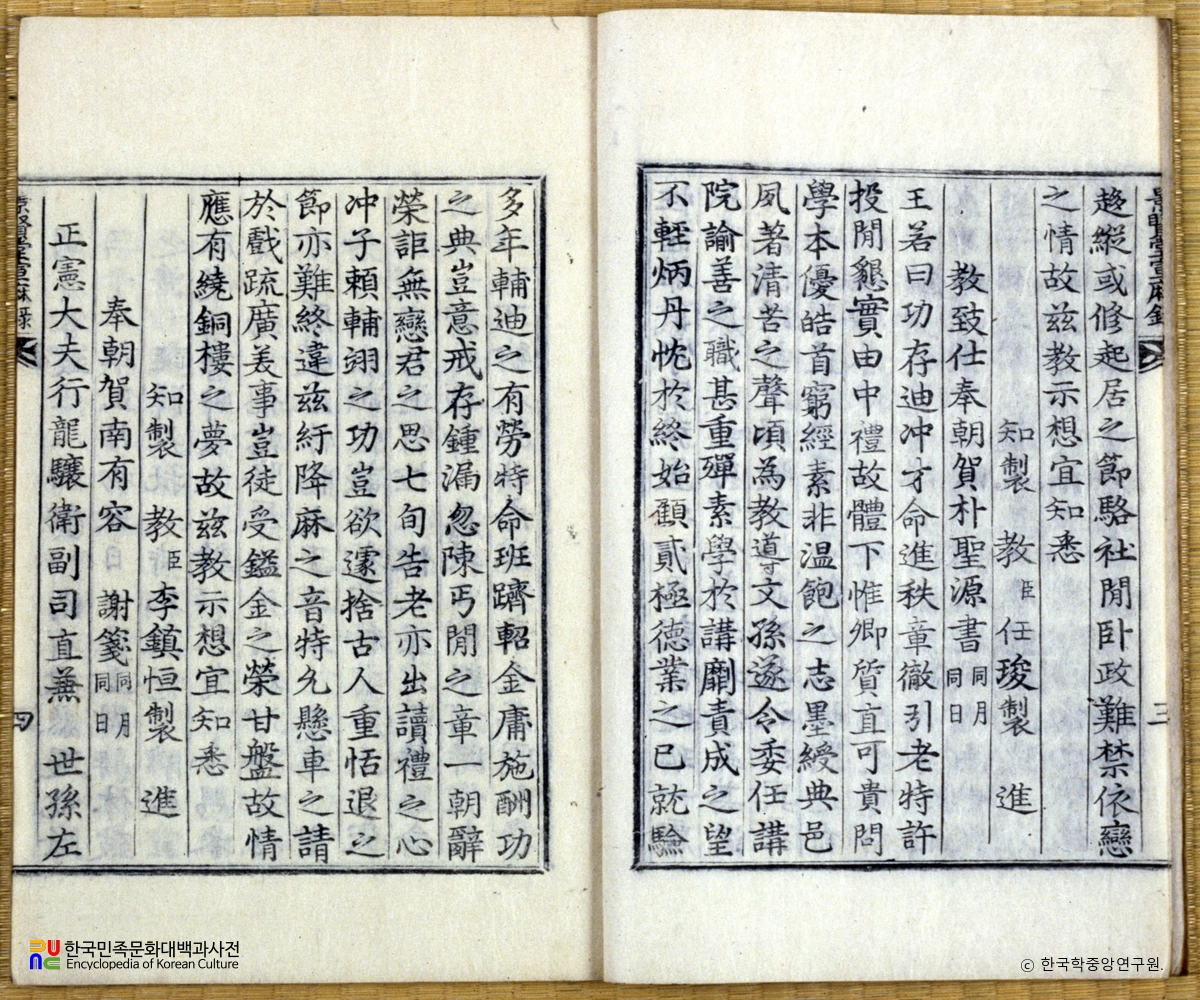 趍縱或修起居之節駱社閒卧政難禁依戀
之情故玆敎示想宜知悉
知製 教臣任㻐製 進
教致仕奉朝賀朴聖源書同月同日
王若曰功存迪冲才命進秩章徹引老特許
投閒懇實由中禮故體下惟卿質直可貴問
學本優皓首窮經素非温飽之志墨綬典邑
夙著清苦之聲頃為教導文孫遂令委任講
院諭善之職甚重殫素學於講劘責成之望
不輕炳丹忱於終始顧貳極德業之已就驗
三
多年輔迪之有勞特命班躋軺金庸施酬功
之典豈意戒存鍾漏忽陳丐閒之章一朝辭
榮詎無戀君之思七旬告老亦出讀禮之心
冲子賴輔翊之功豈欲遽捨古人重恬退之
節亦難終違玆紆降麻之音特允懸車之請
於戲疏廣美事豈徒受鎰金之榮甘盤故情
應有繞銅樓之夢故玆教示想宜知悉
知製 教臣李鎮恒製 進
奉朝賀南有容 謝箋同月同日
正憲大夫行龍驤衛副司直蕪 世孫左
四
한국민족문화대백과사전
Encyclopedia of Korean Culture
© 한국학중앙연구원.